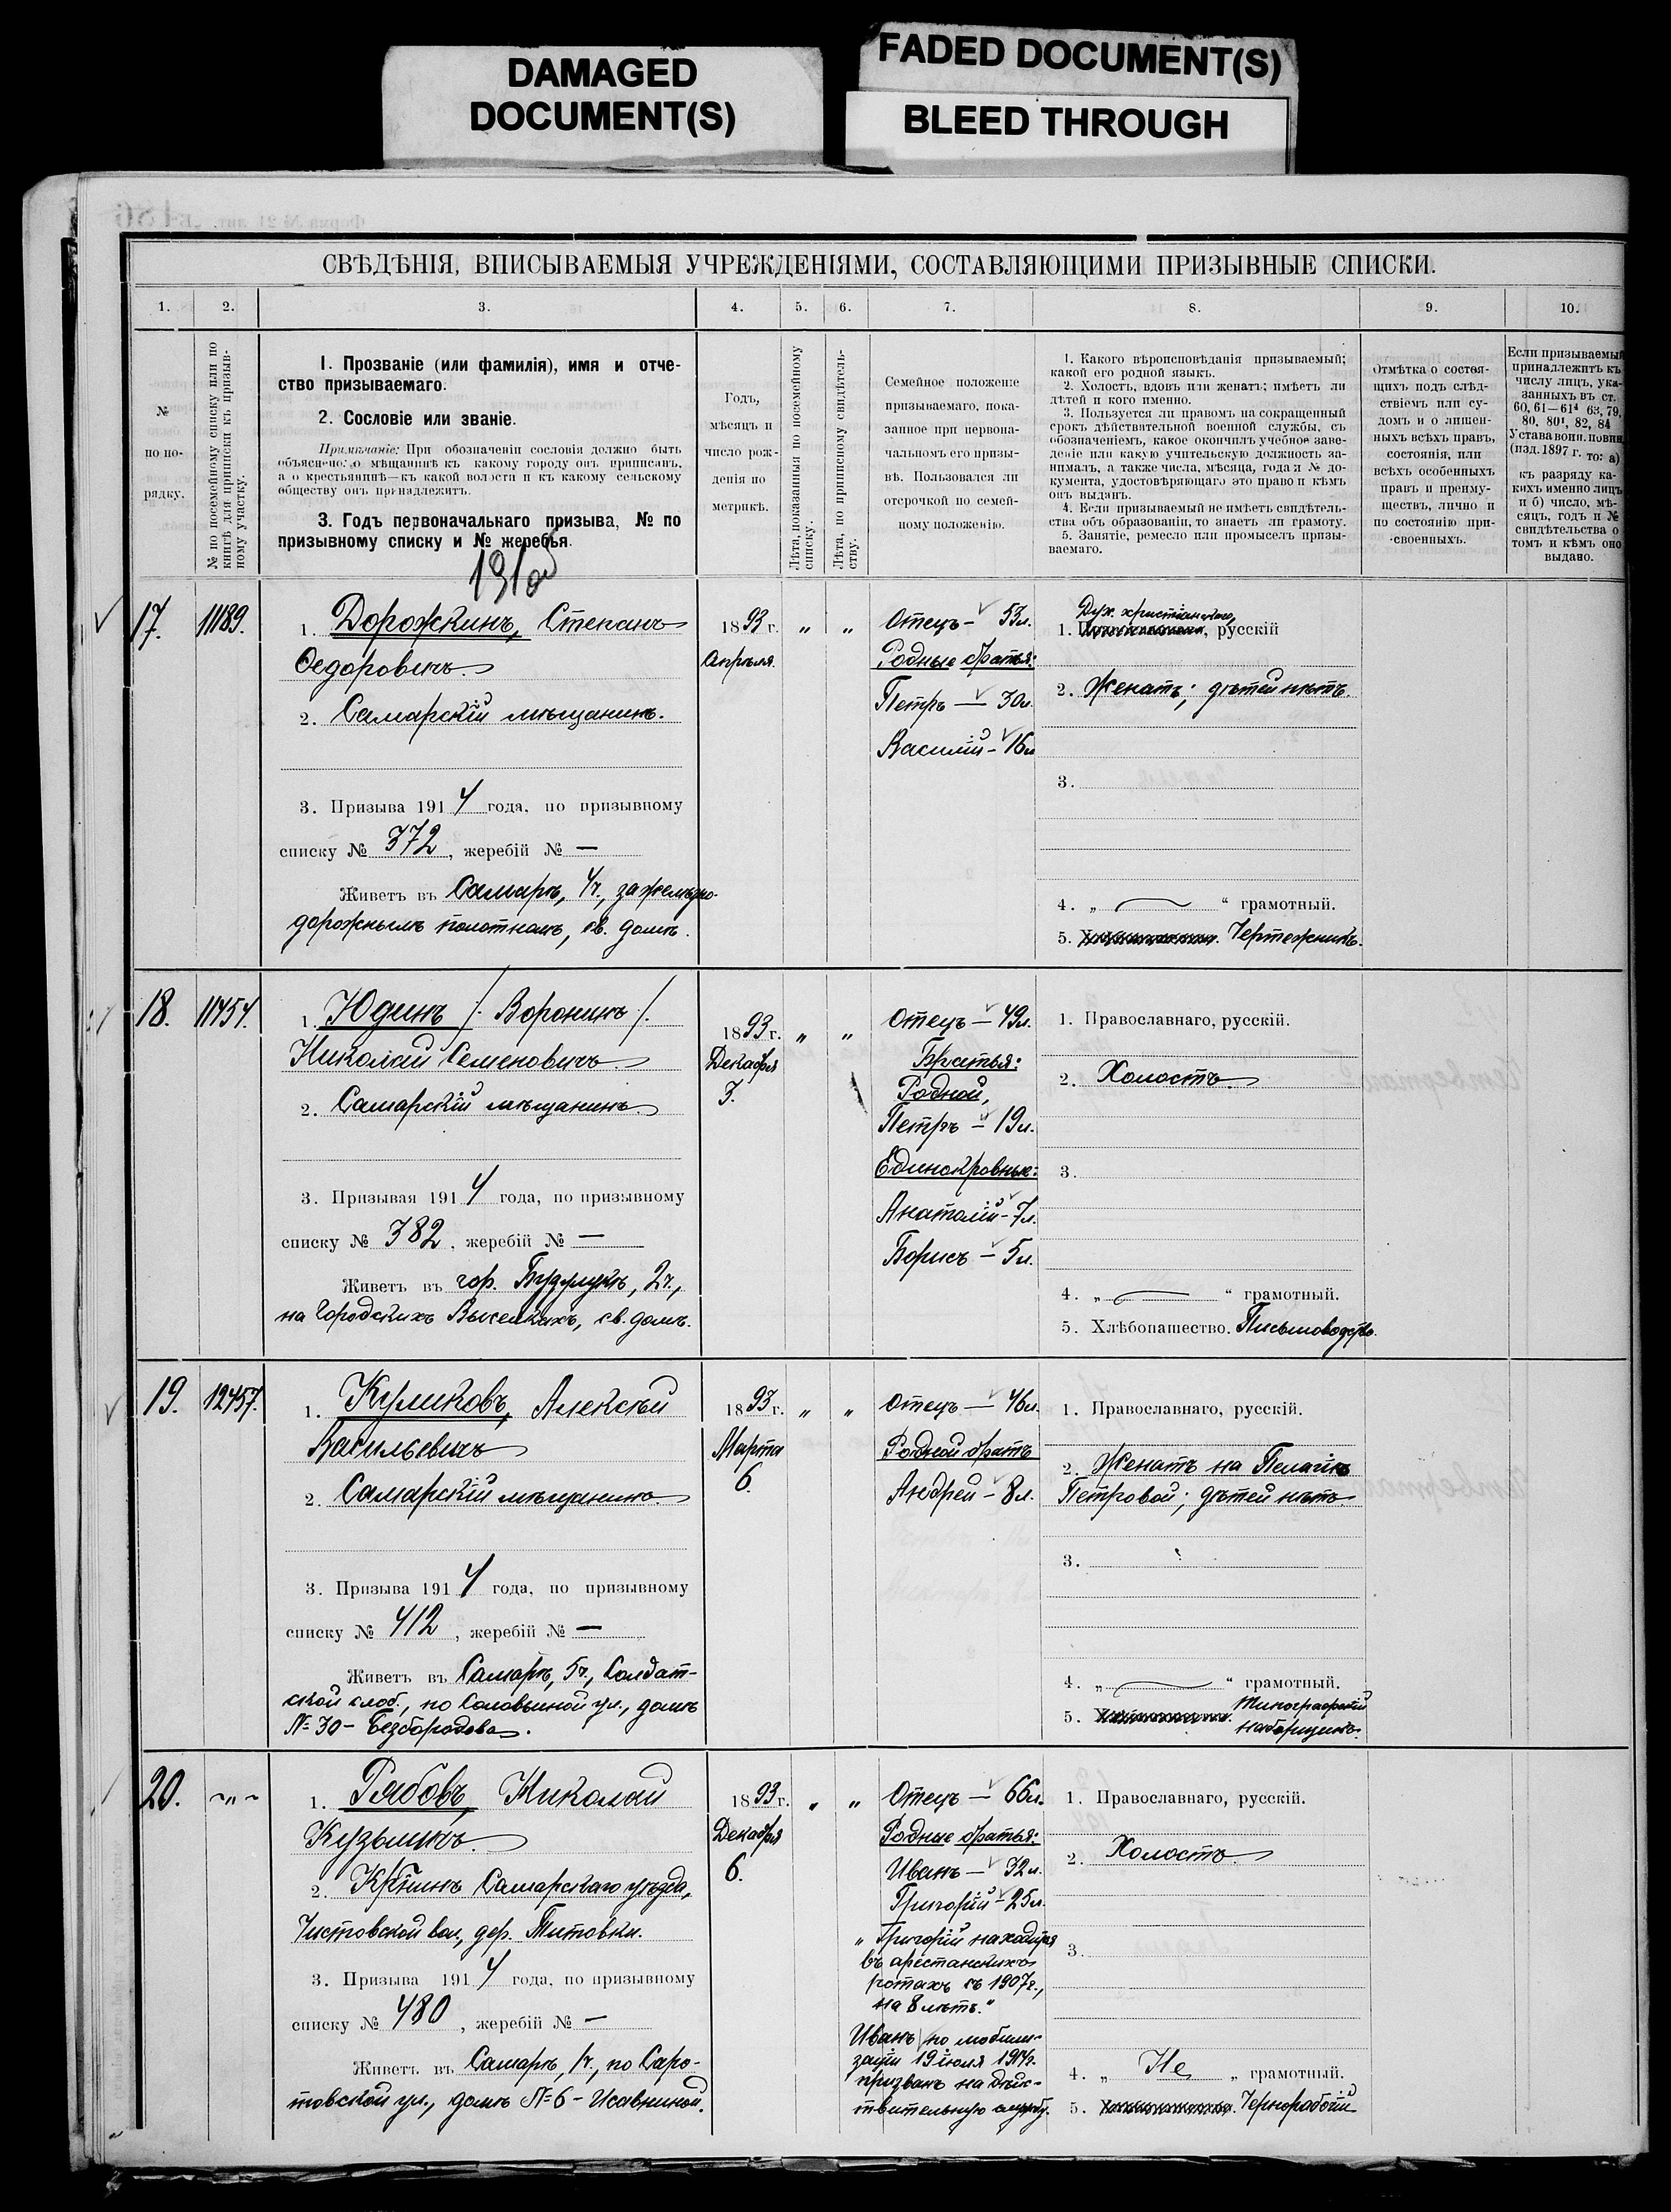 DAMAGED
DOCUMENT(S)
FADED DOCUMENT(S)
BLEED THROUGH
СВѢДѢНІЯ, ВПИСЫВАЕМЫЯ УЧРЕЖДЕНІЯМИ, СОСТАВЛЯЮЩИМИ ПРИЗЫВНЫЕ СПИСКИ.
1. 2. 3. 4. 5. 6. 7. 8. 9. 10.
№
по по-
рядку.
№ по посемейному списку или по
книгѣ для приписки къ призыв-
ному участку.
1. Прозваніе (или фамилія), имя и отче-
ство призываемаго.
2. Сословіе или званіе.
Примѣчаніе: При обозначеніи сословія должно быть
объяснено: о мѣщанинѣ къ какому городу онъ приписанъ,
а о крестьянинѣ—къ какой волости и къ какому сельскому
обществу онъ принадлежитъ.
3. Годъ первоначальнаго призыва, № по
призывному списку и № жеребья.
Годъ,
мѣсяцъ и
число рож-
денія по
метрикѣ.
Лѣта, показанныя по посемейному
списку.
Лѣта, по приписному свидѣтель-
ству.
Семейное положеніе
призываемаго, пока-
занное при первона-
чальномъ его призы-
вѣ. Пользовался ли
отсрочкой по семей-
ному положенію.
1. Какого вѣроисповѣданія призываемый;
какой его родной языкъ.
2. Холостъ, вдовъ или женатъ; имѣетъ ли
дѣтей и кого именно.
3. Пользуется ли правомъ на сокращенный
срокъ дѣйствительной военной службы, съ
обозначеніемъ, какое окончилъ учебное заве-
деніе или какую учительскую должность за-
нималъ, а также числа, мѣсяца, года и № до-
кумента, удостовѣряющаго это право и кѣмъ
онъ выданъ.
4. Если призываемый не имѣетъ свидѣтель-
ства объ образованіи, то знаетъ ли грамоту.
5. Занятіе, ремесло или промыселъ призы-
ваемаго.
Отмѣтка о состоя-
щихъ подъ слѣд-
ствіемъ или су-
домъ и о лишен-
ныхъ всѣхъ правъ,
состоянія, или
всѣхъ особенныхъ
правъ и преиму-
ществъ, лично и
по состоянію при-
своенныхъ.
Если призываемый
принадлежитъ къ
числу лицъ, ука-
занныхъ въ ст.
60, 61—61⁴ 63, 79,
80, 80¹, 82, 84
Устава воин. повин.
(изд. 1897 г. то: а)
къ разряду ка-
кихъ именно лицъ
и б) число, мѣ-
сяцъ, годъ и №
свидѣтельства о
томъ и кѣмъ оно
выдано.
17. 11189.
1. Дорожкинъ, Степанъ
Федоровичъ.
2. Самарскій мѣщанинъ.
3. Призыва 1914 года, по призывному
списку № 372, жеребій № —
Живетъ въ Самарѣ, 4ч., за желѣзно-
дорожнымъ полотномъ, св. домъ.
1893 г. „ „
Апрѣля.
Отецъ — 53л.
Родные братья:
Петръ — 30л.
Василій — 16л.
Дух. христіанскаго
1. русскій
2. Женатъ; дѣтей нѣтъ.
3.
4. „ “ грамотный.
5. Чертежникъ.
18. 11454.
1. Юдинъ /: Воронинъ /:
Николай Семеновичъ.
2. Самарскій мѣщанинъ.
3. Призывая 1914 года, по призывному
списку № 382, жеребій № —
Живетъ въ гор. Бузулукѣ, 2ч.,
на Городскихъ Выселкахъ, св. домъ.
1893 г. „ „
Декабря
3.
Отецъ — 49л.
Братья:
Родной,
Петръ — 19л.
Единокровные:
Анатолій — 7л.
Борисъ — 5л.
1. Православнаго, русскій.
2. Холостъ.
3.
4. „ “ грамотный.
5. Хлѣбопашество. Письмоводство.
19. 12457.
1. Куликовъ, Алексѣй
Васильевичъ
2. Самарскій мѣщанинъ.
3. Призыва 1914 года, по призывному
списку № 412, жеребій № —
Живетъ въ Самарѣ, 5ч., Солдат-
ской слоб., по Соловьиной ул., домъ
№ 30 — Безбородова.
1893 г. „ „
Марта
6.
Отецъ — 46л.
Родной братъ
Андрей — 8л.
1. Православнаго, русскій.
2. Женатъ на Пелагіи
Петровой; дѣтей нѣтъ.
3.
4. „ “ грамотный.
5. Типографскій
наборщикъ.
20. ~„~
1. Рябовъ, Николай
Кузьмичъ.
2. Кр-нинъ Самарскаго уѣзда,
Чистовской вол., дер. Титовки.
3. Призыва 1914 года, по призывному
списку № 480, жеребій № —
Живетъ въ Самарѣ, 1ч., по Саро-
товской ул., домъ № 6 — Исавниной.
1893 г. „ „
Декабря
6.
Отецъ — 66л.
Родные братья:
Иванъ — 32л.
Григорій — 25л.
„Григорій находится
въ арестанскихъ
ротахъ съ 1907г.,
на 8 лѣтъ.“
Иванъ по мобили-
заціи 19 іюля 1914г.
призванъ на дѣйс-
твительную службу.
1. Православнаго, русскій.
2. Холостъ.
3.
4. „ Не „ грамотный.
5. Чернорабочій